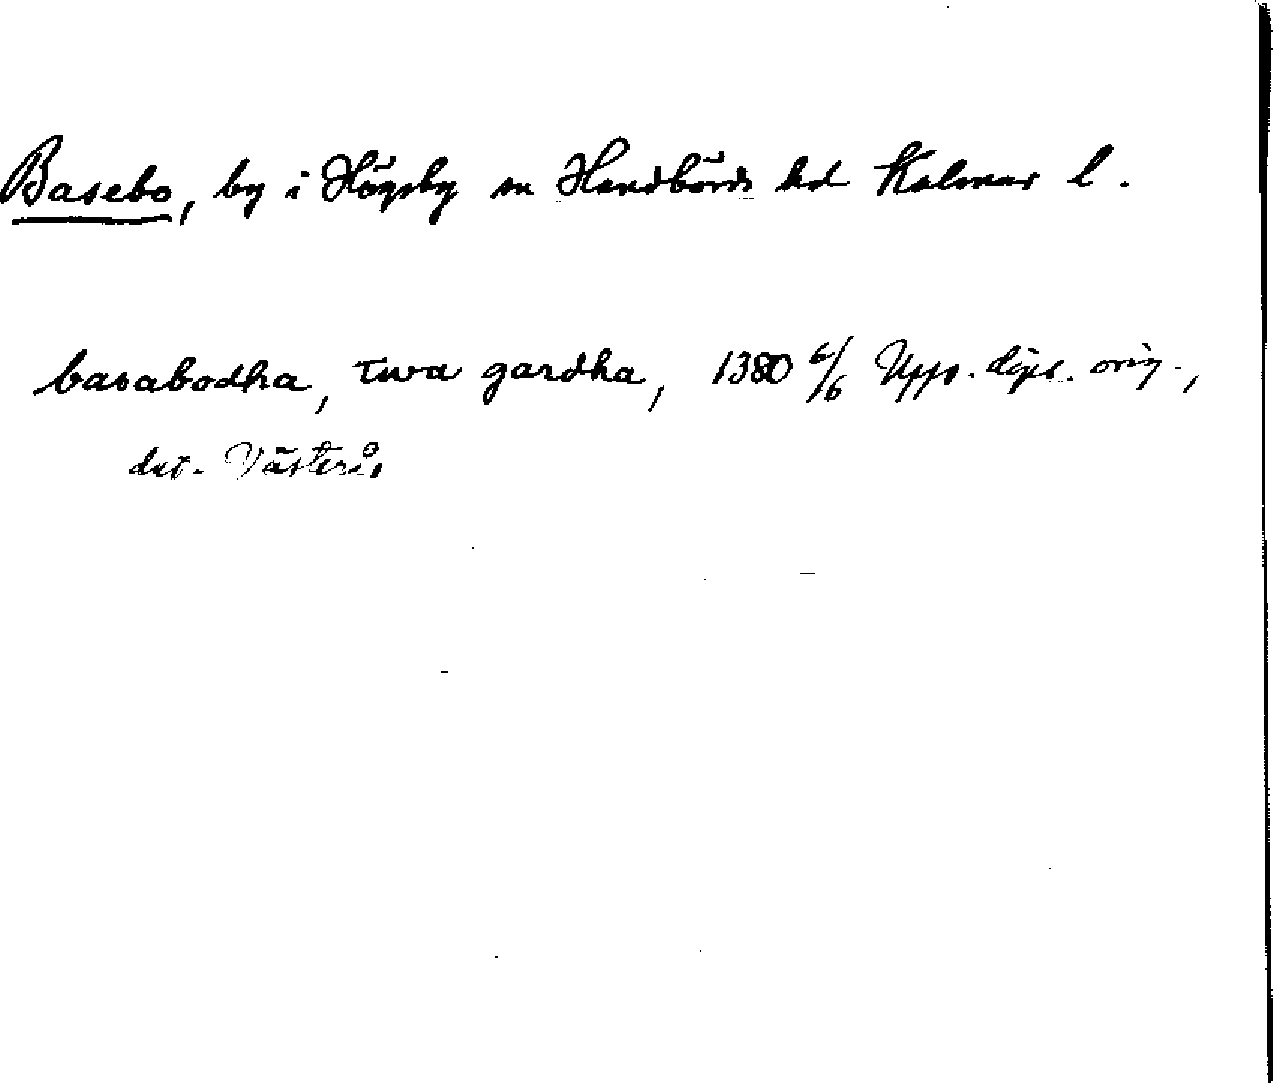 Basebo, by i Högsby sn Handbörds hd Kalmar l.
basabodha, twa gardha, 1380 6/6 Upps. dipl. orig.,
dat. Västerås